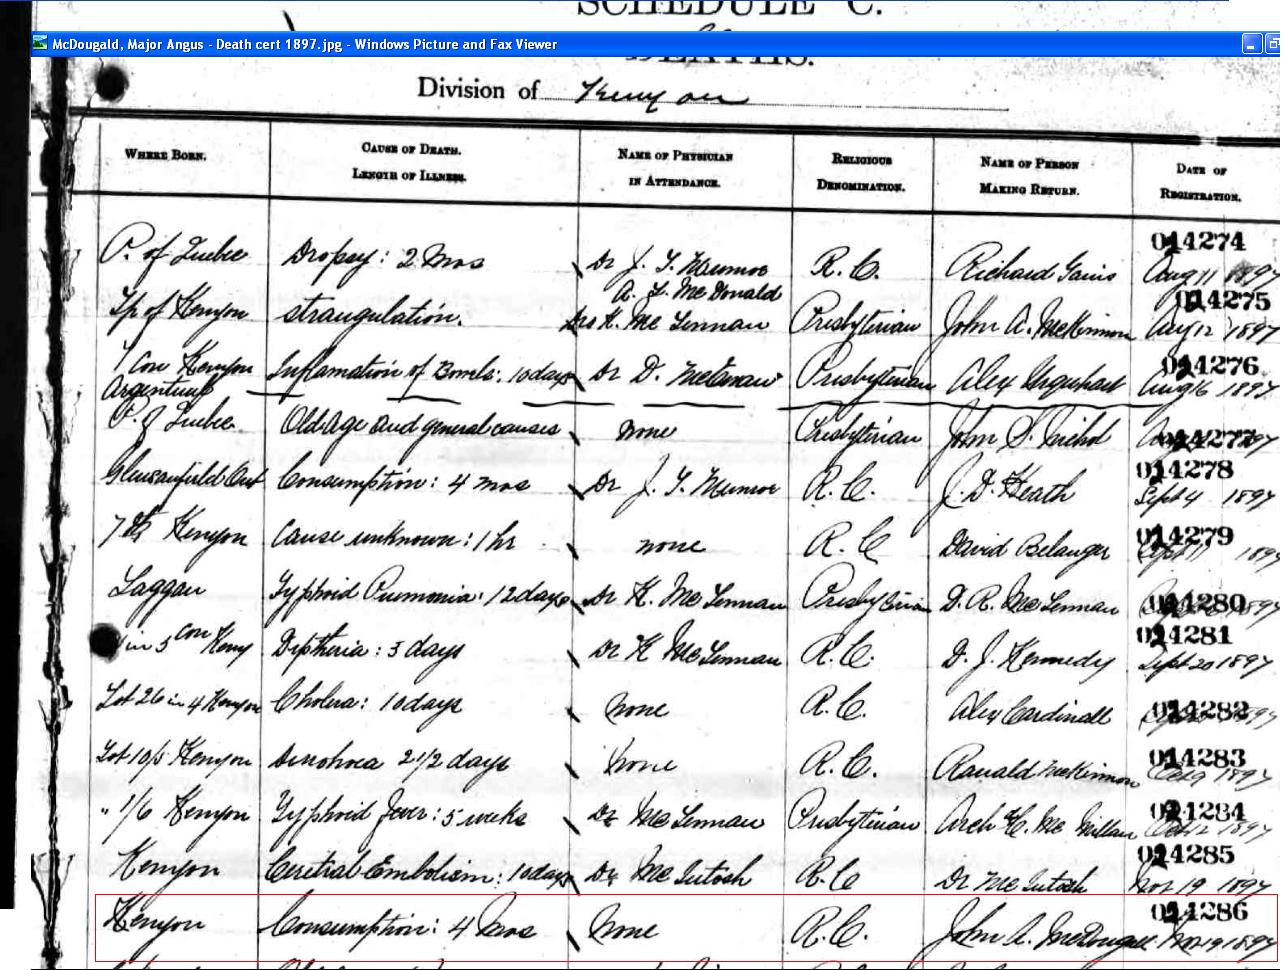 SCHEDULE C.
McDougald, Major Angus - Death cert 1897.jpg - Windows Picture and Fax Viewer
DEATHS.
Division of Kenyon
WHERE BORN. CAUSE OF DEATH. LENGTH OF ILLNESS. NAME OF PHYSICIAN IN ATTENDANCE. RELIGIOUS DENOMINATION. NAME OF PERSON MAKING RETURN. DATE OF REGISTRATION.
014274
P. of Quebec Dropsy: 2 Mos Dr J. T. Munroe R. C. Richard Aug 11 1897
A. L. McDonald 014275
Tp of Kenyon Strangulation. Drs K. McLennan Presbyterian John A. McKinnon Aug 12 1897
014276
7 Con Kenyon Inflamation of Bowels: 10 days Dr D. Presbyterian Alex Urquhart Aug 16 1897
Argentuil
P. of Quebec Old Age and general causes none Presbyterian John S. Nichol 014277
014278
Consumption: 4 mos Dr J. T. Munroe R. C. J. D. Heath Sept 4 1897
014279
7th Kenyon Cause unknown: 1 hr none R. C David Belanger Sept 11 189
Laggan Typhoid Pnumonia: 12 days Dr K. McLennan Presbyterian D. R. McLennan 014280
014281
in 5 con Keny Diptheria: 3 days Dr K McLennan R. C. D. J. Kennedy Sept 20 1897
Lot 26 in 4 Kenyon Cholera: 10 days None R. C. Alex Cardinall 014282
014283
Lot 10/5 Kenyon 2 1/2 days None R. C. Ranald McKinnon Oct 9 1897
014284
" 1/6 Kenyon Typhoid Fever: 5 weeks Dr McLennan Presbyterian Arch K. McMillan Oct 12 1897
014285
Kenyon Cerebral Embolism: 10 days Dr McIntosh R. C Dr McIntosh Nov 19 1897
014286
Kenyon Consumption: 4 Mos None R. C. John A. McDougall Nov 19 1897